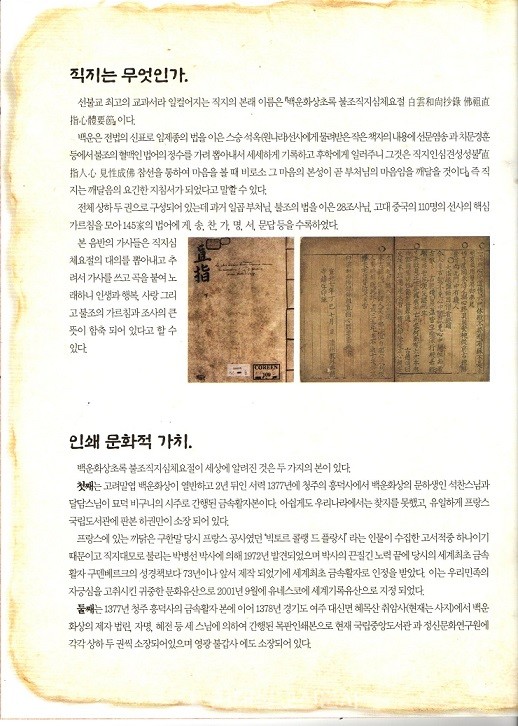 직지는 무엇인가.
선불교 최고의 교과서라 일컬어지는 직지의 본래 이름은 『백운화상초록 불조직지심체요절 白雲和尙抄錄 佛祖直
指心體要節』이다.
백운은 전법의 신표로 임제종의 법을 이은 스승 석옥(원나라)선사에게 물려받은 작은 책자의 내용에 선문염송과 치문경훈
등에서 불조의 혈맥인 법어의 정수를 가려 뽑아내서 세세하게 기록하고 후학에게 일러주니 그것은 직지인심견성성불『直
指人心 見性成佛 참선을 통하여 마음을 볼 때 비로소 그 마음의 본성이 곧 부처님의 마음임을 깨달을 것이다』 즉 직
지는 깨달음의 요긴한 지침서가 되었다고 말할 수 있다.
전체 상하 두 권으로 구성되어 있는데 과거 일곱 부처님, 불조의 법을 이은 28조사님, 고대 중국의 110명의 선사의 핵심
가르침을 모아 145家의 법어에 게, 송, 찬, 가, 명, 서, 문답 등을 수록하였다.
본 음반의 가사들은 직지심
체요절의 대의를 뽑아내고 추
려서 가사를 쓰고 곡을 붙여 노
래하니 인생과 행복, 사랑 그리
고 불조의 가르침과 조사의 큰
뜻이 함축 되어 있다고 할 수
있다.
直指
COREEN
109
인쇄 문화적 가치.
백운화상초록 불조직지심체요절이 세상에 알려진 것은 두 가지의 본이 있다.
첫째는 고려말엽 백운화상이 열반하고 2년 뒤인 서력 1377년에 청주의 흥덕사에서 백운화상의 문하생인 석찬스님과
달담스님이 묘덕 비구니의 시주로 간행된 금속활자본이다. 아쉽게도 우리나라에서는 찾지를 못했고, 유일하게 프랑스
국립도서관에 판본 하권만이 소장 되어 있다.
프랑스에 있는 까닭은 구한말 당시 프랑스 공사였던 '빅토르 콜랭 드 플랑시' 라는 인물이 수집한 고서적중 하나이기
때문이고 직지대모로 불리는 박병선 박사에 의해 1972년 발견되었으며 박사의 끈질긴 노력 끝에 당시의 세계최초 금속
활자 구덴베르크의 성경책보다 73년이나 앞서 제작 되었기에 세계최초 금속활자로 인정을 받았다. 이는 우리민족의
자긍심을 고취시킨 귀중한 문화유산으로 2001년 9월에 유네스코에 세계기록유산으로 지정 되었다.
둘째는 1377년 청주 흥덕사의 금속활자 본에 이어 1378년 경기도 여주 대신면 혜목산 취암사(현재는 사지)에서 백운
화상의 제자 법린, 자명, 혜전 등 세 스님에 의하여 간행된 목판인쇄본으로 현재 국립중앙도서관 과 정신문화연구원에
각각 상하 두 권씩 소장되어있으며 영광 불갑사 에도 소장되어 있다.